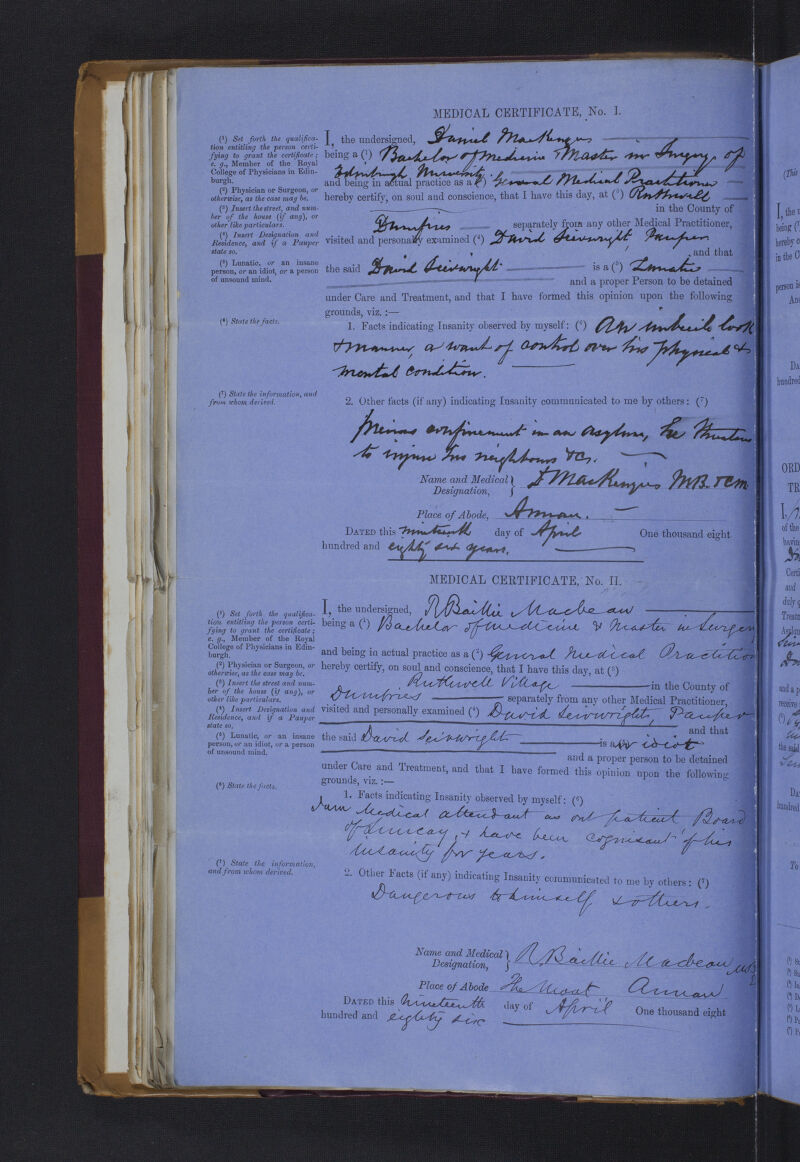 MEDICAL CERTIFICATE, No. I.
(¹) Set forth the qualifica-
tion entitling the person certi-
fying to grant the certificate;
e. g., Member of the Royal
College of Physicians in Edin-
burgh.
(²) Physician or Surgeon, or
otherwise, as the case may be.
(³) Insert the street, and num-
ber of the house (if any), or
other like particulars.
(⁴) Insert Designation and
Residence, and if a Pauper
state so.
(⁵) Lunatic, or an insane
person, or an idiot, or a person
of unsound mind.
(⁶) State the facts.
(⁷) State the information, and
from whom derived.
I, the undersigned, Daniel MacKenzie
being a (¹) Bachelor of Medicine & Master in Surgery of
Edinburgh University
and being in actual practice as a (²) General Medical Practitioner
hereby certify, on soul and conscience, that I have this day, at (³) Ruthwell
in the County of
Dumfries separately from any other Medical Practitioner,
visited and personally examined (⁴) David Seivwright, Pauper
, and that
the said David Seivwright is a (⁵) Lunatic
and a proper Person to be detained
under Care and Treatment, and that I have formed this opinion upon the following
grounds, viz. :—
1. Facts indicating Insanity observed by myself: (⁶) An imbecile look
& manner, a want of control over his physical &
mental condition.
2. Other facts (if any) indicating Insanity communicated to me by others: (⁷)
Previous confinement in an asylum, he threatens
to injure his neighbours &c.
Name and Medical Designation, D MacKenzie MB. & CM
Place of Abode, Annan.
DATED this nineteenth day of April One thousand eight
hundred and eighty six years.
MEDICAL CERTIFICATE, No. II.
(¹) Set forth the qualifica-
tion entitling the person certi-
fying to grant the certificate;
e. g., Member of the Royal
College of Physicians in Edin-
burgh.
(²) Physician or Surgeon, or
otherwise, as the case may be.
(³) Insert the street and num-
ber of the house (if any), or
other like particulars.
(⁴) Insert Designation and
Residence, and if a Pauper
state so.
(⁵) Lunatic, or an insane
person, or an idiot, or a person
of unsound mind.
(⁶) State the facts.
(⁷) State the information,
and from whom derived.
I, the undersigned, R Baillie Macbean
being a (¹) Bachelor of medicine & Master in Surgery
and being in actual practice as a (²) General Medical Practitioner
hereby certify, on soul and conscience, that I have this day, at (³)
Ruthwell Village in the County of
Dumfries separately from any other Medical Practitioner,
visited and personally examined (⁴) David Seivwright, Pauper
and that
the said David Seivwright is an idiot
and a proper person to be detained
under Care and Treatment, and that I have formed this opinion upon the following
grounds, viz. :—
1. Facts indicating Insanity observed by myself: (⁶)
I am Medical attendant as out patient Board
of Lunacy, & have been cognisant of his
insanity for years.
2. Other Facts (if any) indicating Insanity communicated to me by others: (⁷)
Dangerous to himself & others.
Name and Medical Designation, R Baillie Macbean
Place of Abode The Moat Annan
DATED this nineteenth day of April One thousand eight
hundred and eighty six